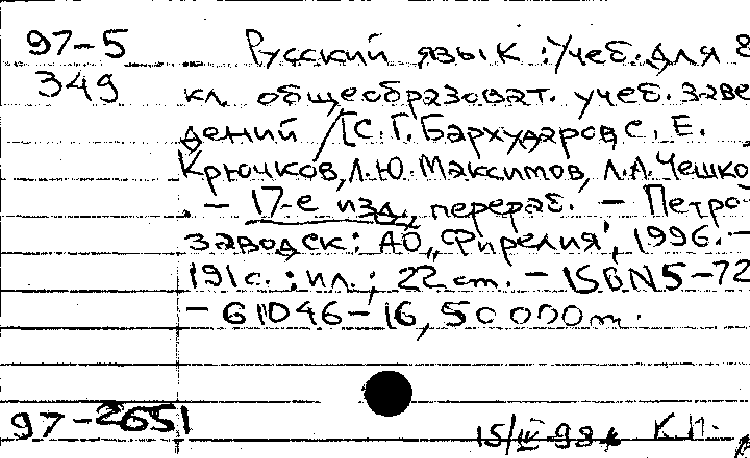 97-5 Русский язык : Учеб. для 8
349 кл. общеобразоват. учеб. заве
дений / [С. Г. Бархударов, С. Е.
Крючков, Л.Ю. Максимов, Л.А. Чешко
. - 17-е изд., перераб. - Петро-
заводск: АО „Фирелия", 1996. -
191 с. : ил. ; 22 cm. - ISBN 5-72
- G1046 - 16, 50 000 т.
97-2651
15/IV-98 К.П.